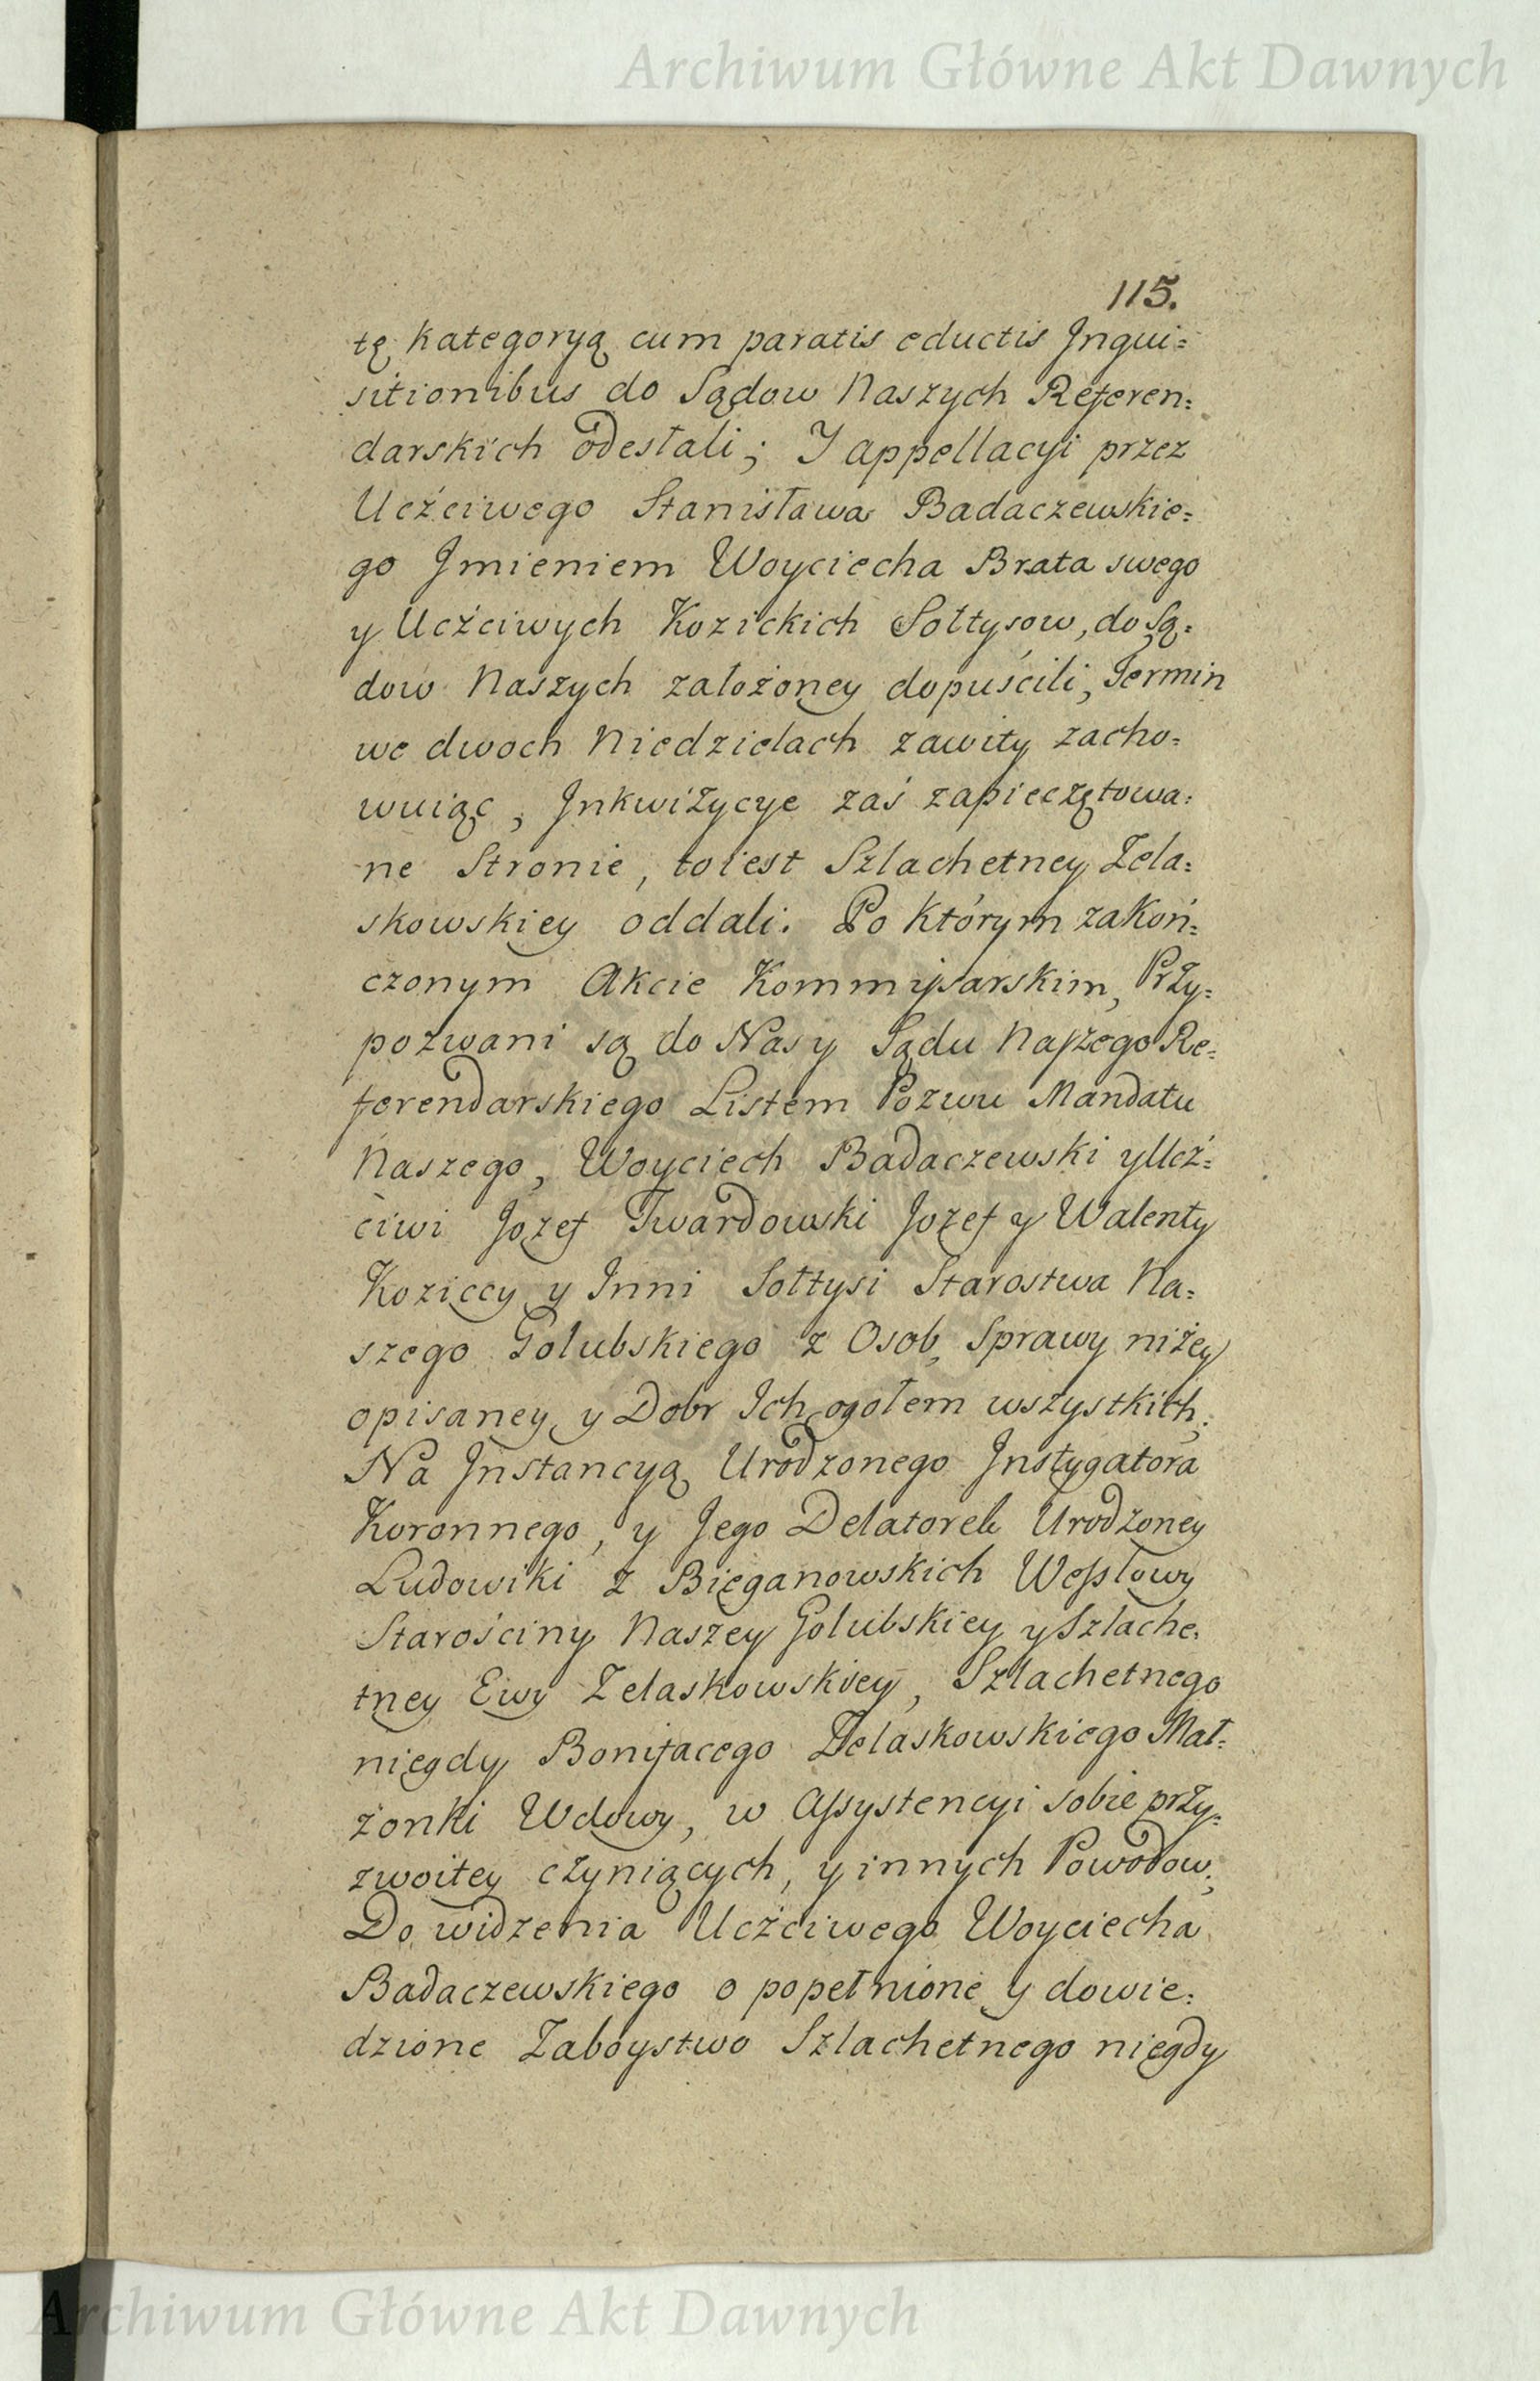 Archiwum Główne Akt Dawnych
115.
tę kategoryą cum paratis eductis Inqui=
sitionibus do Sądow Naszych Referen=
darskich odesłali; I appellacyi przez
Uczciwego Stanisława Badaczewskie=
go Imieniem Woyciecha Brata swego
y Uczciwych Kozickich Sołtysow, do Są=
dow Naszych założoney dopuścili, Termin
we dwoch Niedzielach zawity zacho=
wuiąc, Inkwizycye zaś zapieczętowa=
ne Stronie, toiest Szlachetney Zela=
skowskiey oddali. Po którym zakoń=
czonym Akcie Kommissarskim, Przy=
pozwani są do Nas y Sądu Naszego Re=
ferendarskiego Listem Pozwu Mandatu
Naszego, Woyciech Badaczewski y Ucz=
ciwi Jozef Twardowski Jozef y Walenty
Koziccy y Inni Sołtysi Starostwa Na=
szego Golubskiego z Osob, Sprawy niżey
opisaney y Dobr Ich ogołem wszystkich;
Na Instancyą Urodzonego Instygatora
Koronnego, y Jego Delatorek Urodzoney
Ludowiki z Bieganowskich Wessłowy
Starościny Naszey Golubskiey y Szlache=
tney Ewy Zelaskowskiey, Szlachetnego
niegdy Bonifacego Zelaskowskiego Mał=
żonki Wdowy, w Assystencyi sobie przy=
zwoitey czyniących, y innych Powodow;
Do widzenia Uczciwego Woyciecha
Badaczewskiego o popełnione y dowie=
dzione Zaboystwo Szlachetnego niegdy
Archiwum Główne Akt Dawnych